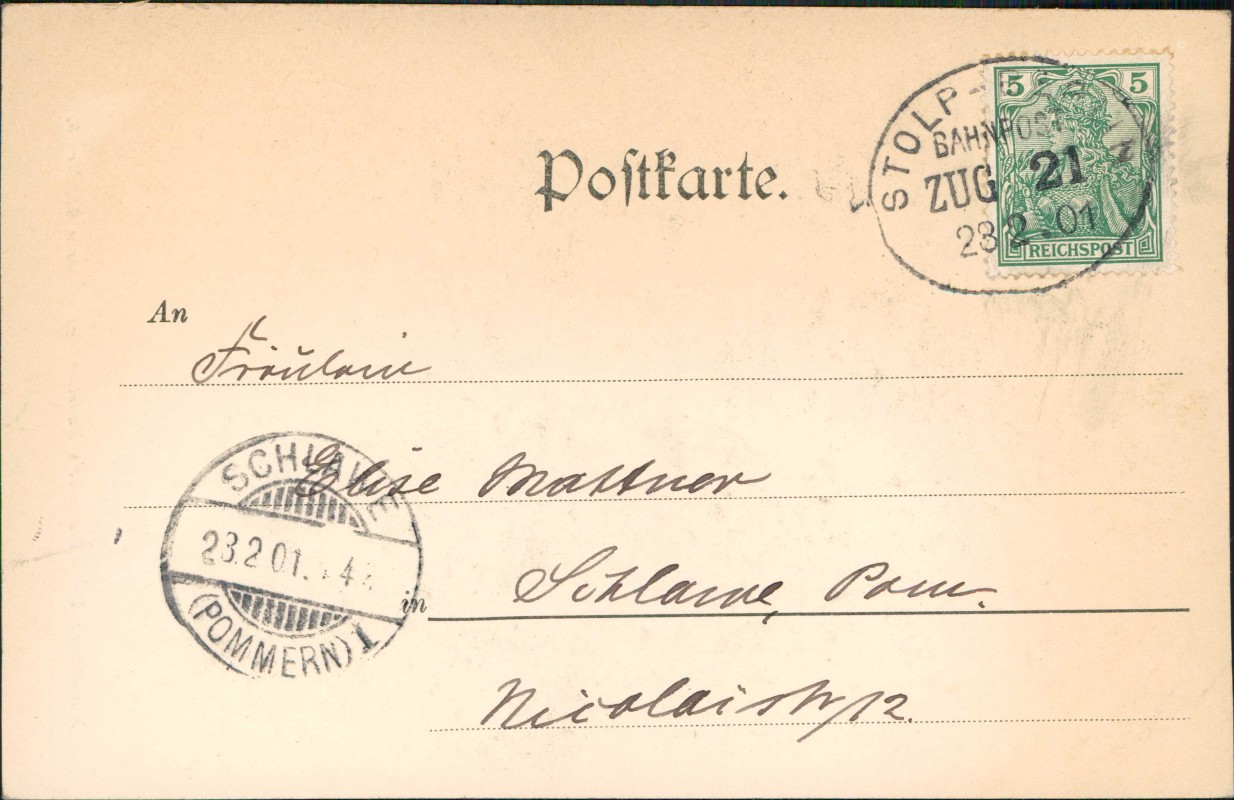 Postkarte.
5 5
REICHSPOST
STOLP-
BAHNPOST
ZUG 21
23 2.01
An
Fräulein
Elise Mattner
in Schlawe, Pom.
Nicolaistr 12.
SCHLAWE
23.2 01.
(POMMERN) 1